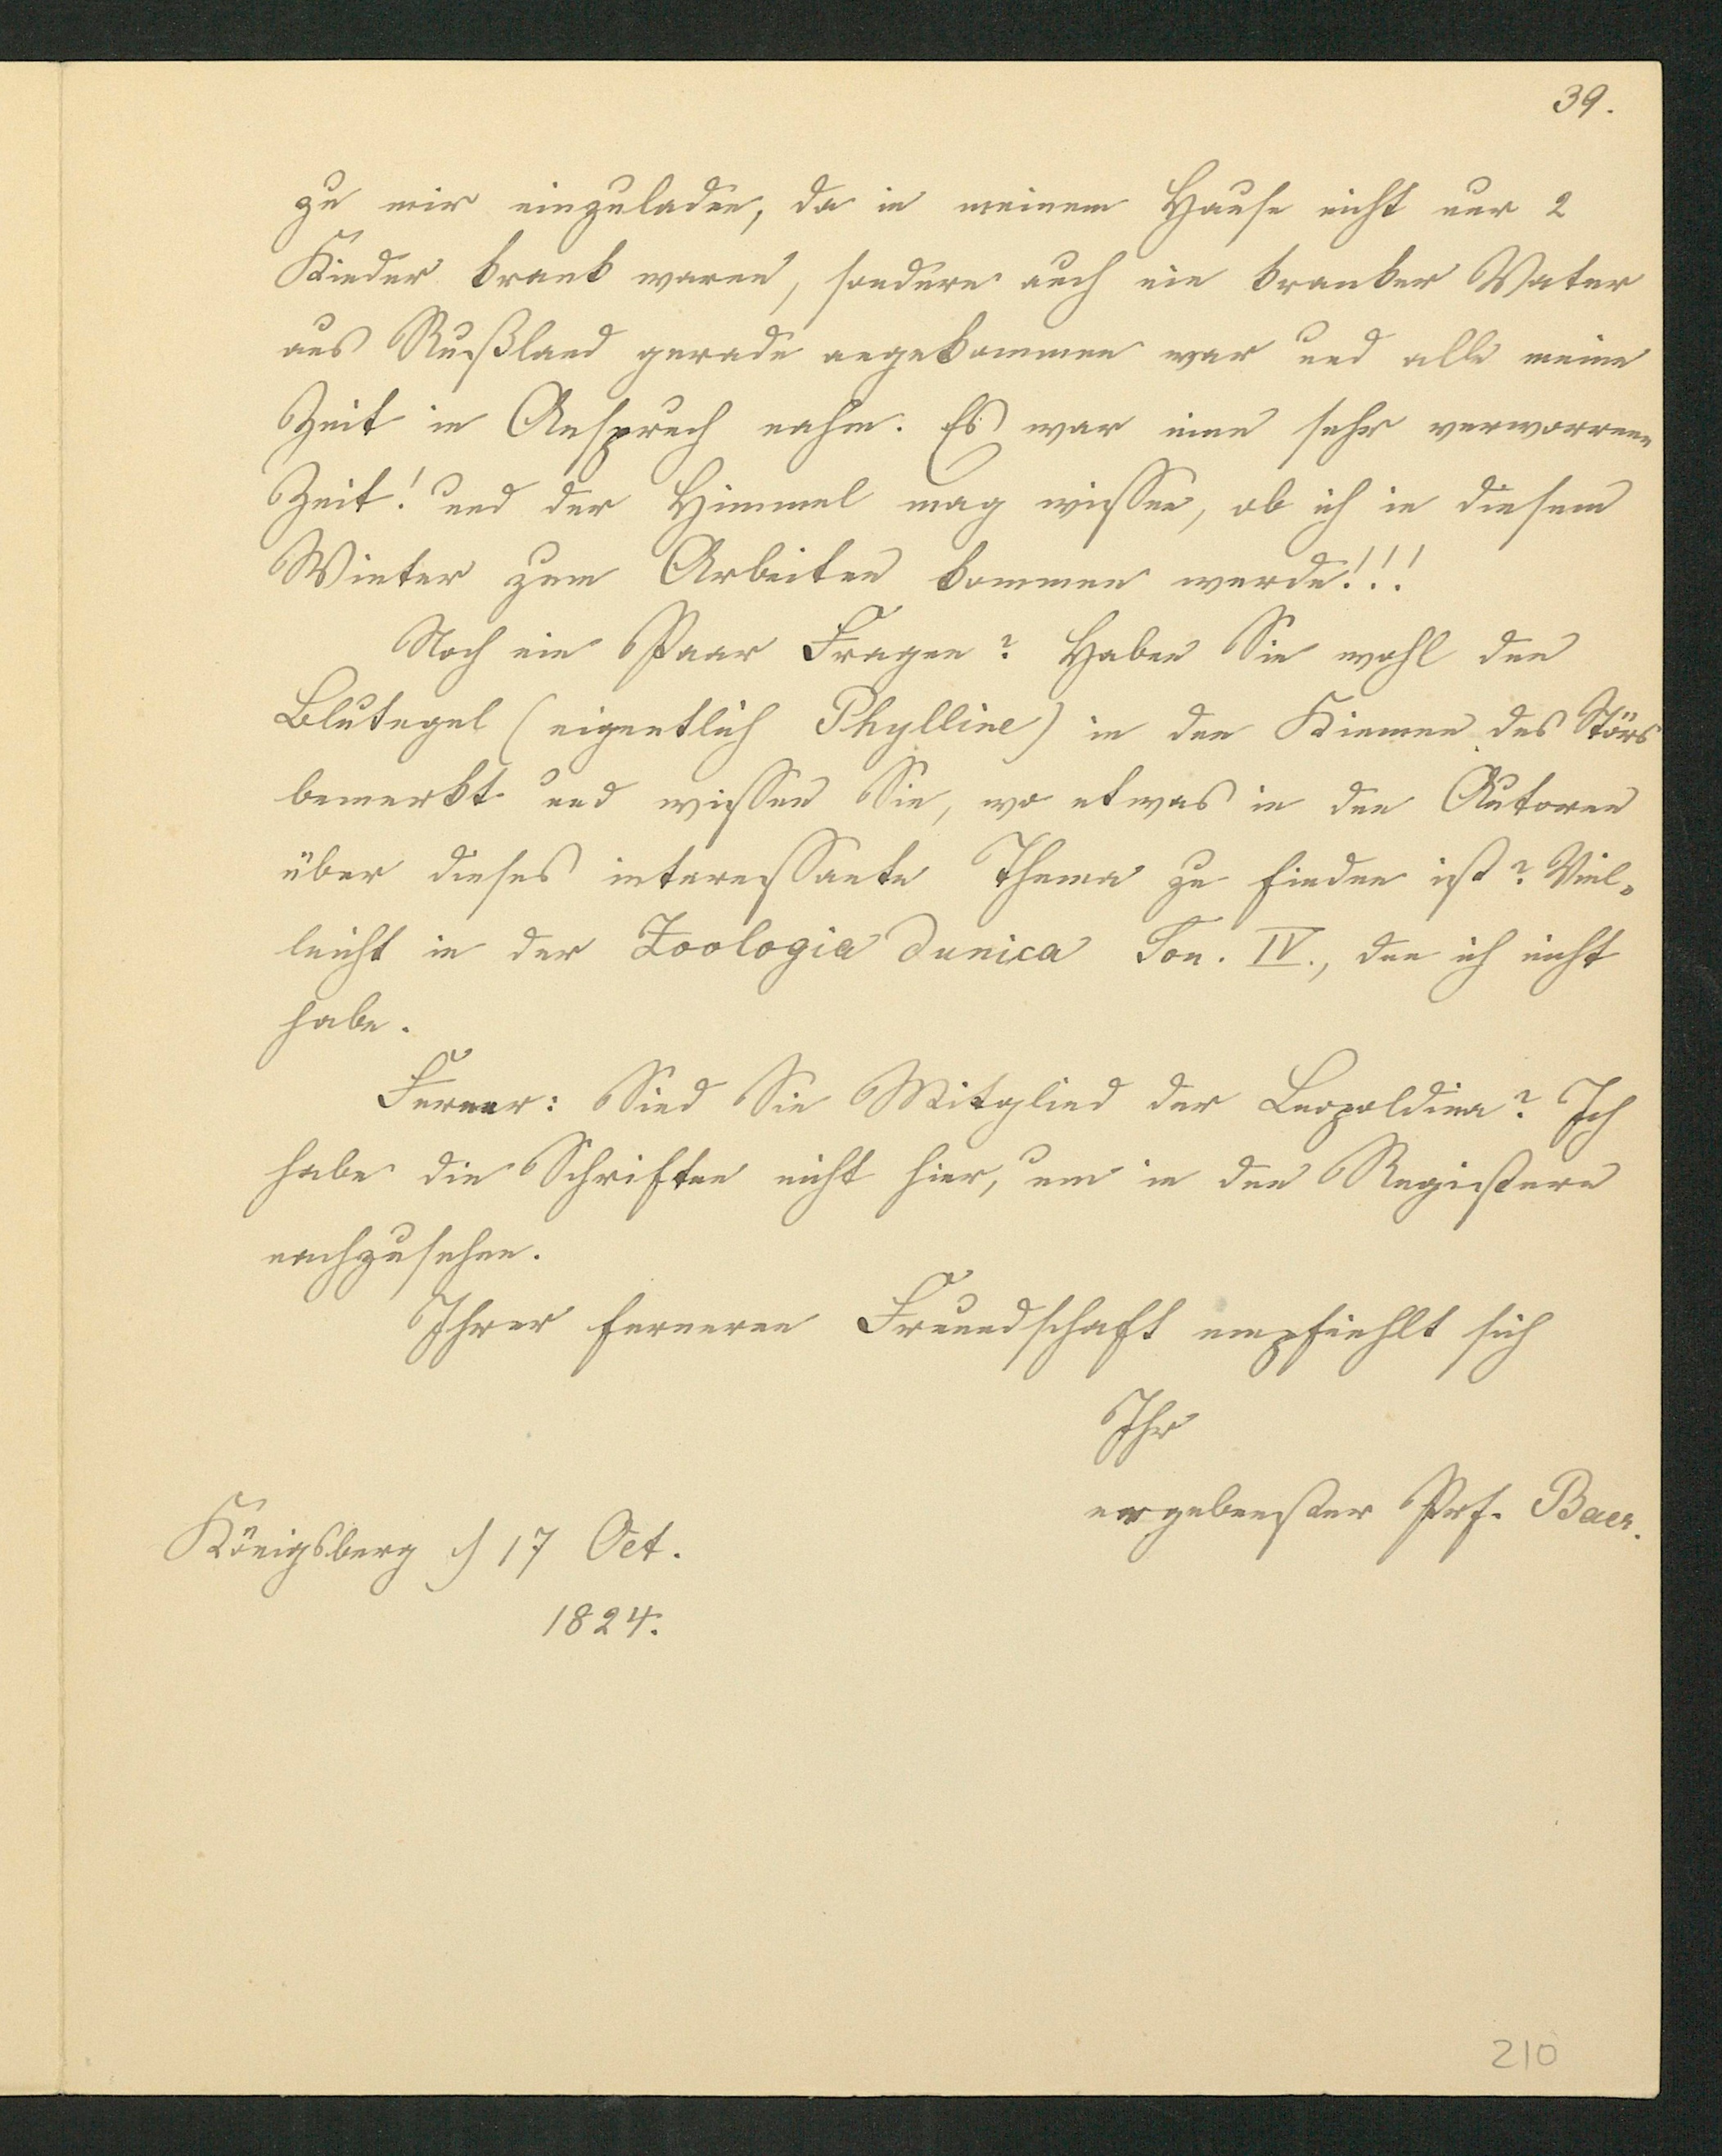 39.
zu mir einzuladen, da in meinem Hause nicht nur 2
Kinder krank waren, sondern auch ein kranker Vater
aus Rußland gerade angekommen war und alle meine
Zeit in Anspruch nahm. Es war eine sehr verworrene
Zeit! und der Himmel mag wissen, ob ich in diesem
Winter zum Arbeiten kommen werde!!!
Noch ein Paar Fragen? Haben Sie wohl den
Blutegel (eigentlich Phylline) in den Kiemen des Störs
bemerkt und wissen Sie, wo etwas in den Autoren
über dieses interessante Thema zu finden ist? Viel-
leicht in der Zoologia dunica Ton. IV., den ich nicht
habe.
Ferner: Sind Sie Mitglied der Leopoldina? Ich
habe die Schriften nicht hier, um in den Registern
nachzusehen.
Ihrer ferneren Freundschaft empfiehlt sich
Ihr
ergebenster Prf. Baer.
Königsberg d 17 Oct.
1824.
210